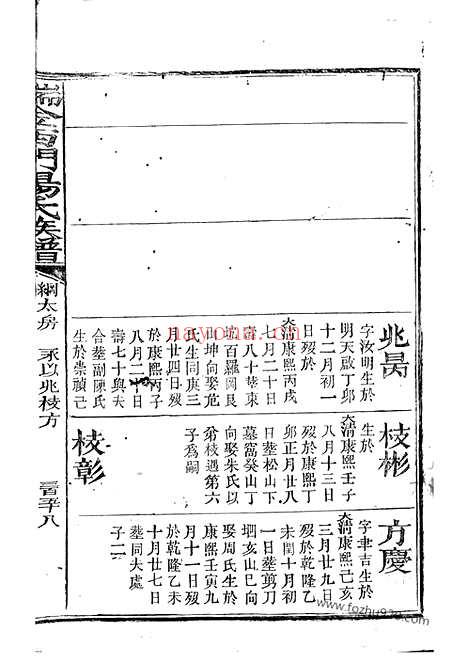 兆昺
字汝明生於
明天啟丁卯
十二月初一
日歿於
大清康熙丙戌
七月二十日
壽八十葬東
坑百羅岡艮
山坤向娶危
氏生同庚三
月廿四日歿
於康熙丙子
八月二十日
壽七十與夫
合塟副陳氏
生於崇禎己
枝彬
生於
大清康熙壬子
八月十三日
歿於康熙丁
卯正月廿八
日塟松山下
墓窩癸山丁
向娶朱氏以
弟枝遇第六
子為嗣
枝彰
方慶
字聿吉生於
大清康熙己亥
三月廿九日
歿於乾隆乙
未閏十月初
一日塟剪刀
坝亥山巳向
娶周氏生於
康熙壬寅九
月十一日歿
於乾隆乙未
十月廿七日
塟同夫處
子二
瑞金西門楊氏族譜
綱太房
永以兆枝方
nayona.cn
www.fozhu920.com